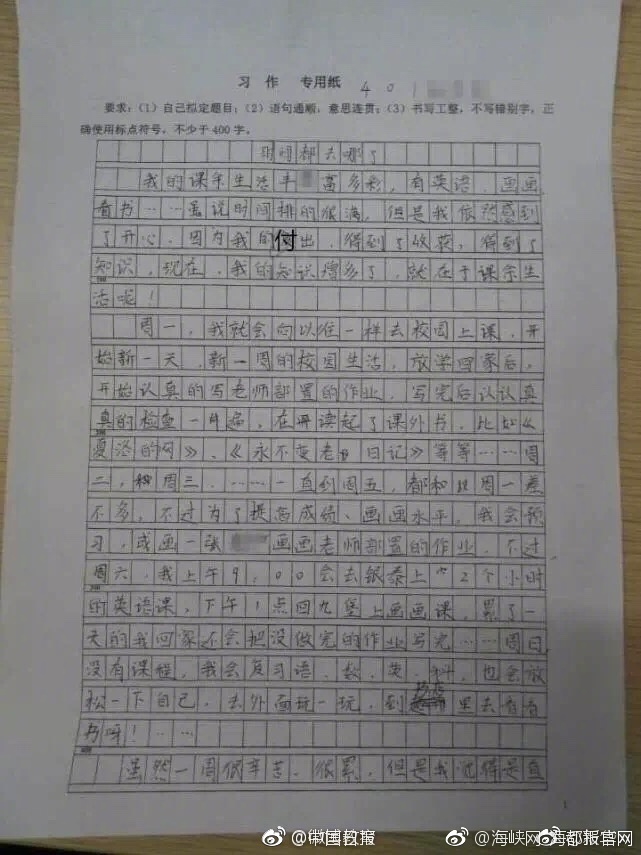 习 作 专用纸 401
要求：（1）自己拟定题目；（2）语句通顺，意思连贯；（3）书写工整，不写错别字，正
确使用标点符号，不少于400字。
时间都去哪了
我的课余生活丰富多彩，有英语、画画
看书……虽说时间排的很满，但是我依然感到
了开心，因为我的付出，得到了收获，得到了
知识，现在，我的知识增多了，就在于课余生
活呢！
周一，我就会向以往一样去校园上课，开
始新一天，新一周的校园生活，放学回家后，
开始认真的写老师部置的作业，写完后认认真
真的检查一遍，在再读起了课外书，比如《
夏洛的网》、《永不变老的日记》等等……周
二，和周三，……一直到周五，都和周一差
不多，不过为了提高成绩、画画水平，我会预
习，或画一张画画老师部置的作业，不过
周六，我上午9：00会去银泰上2个小时
的英语课，下午1点回九堡上画画课，累了一
天的我回家还会把没做完的作业写完……周日
没有课程，我会复习语、数、英、科，也会放
松一下自己，去外面玩一玩，到书店里去看看
书呀！……
虽然一周很辛苦、很累，但是我觉得是直
1
@海峡网